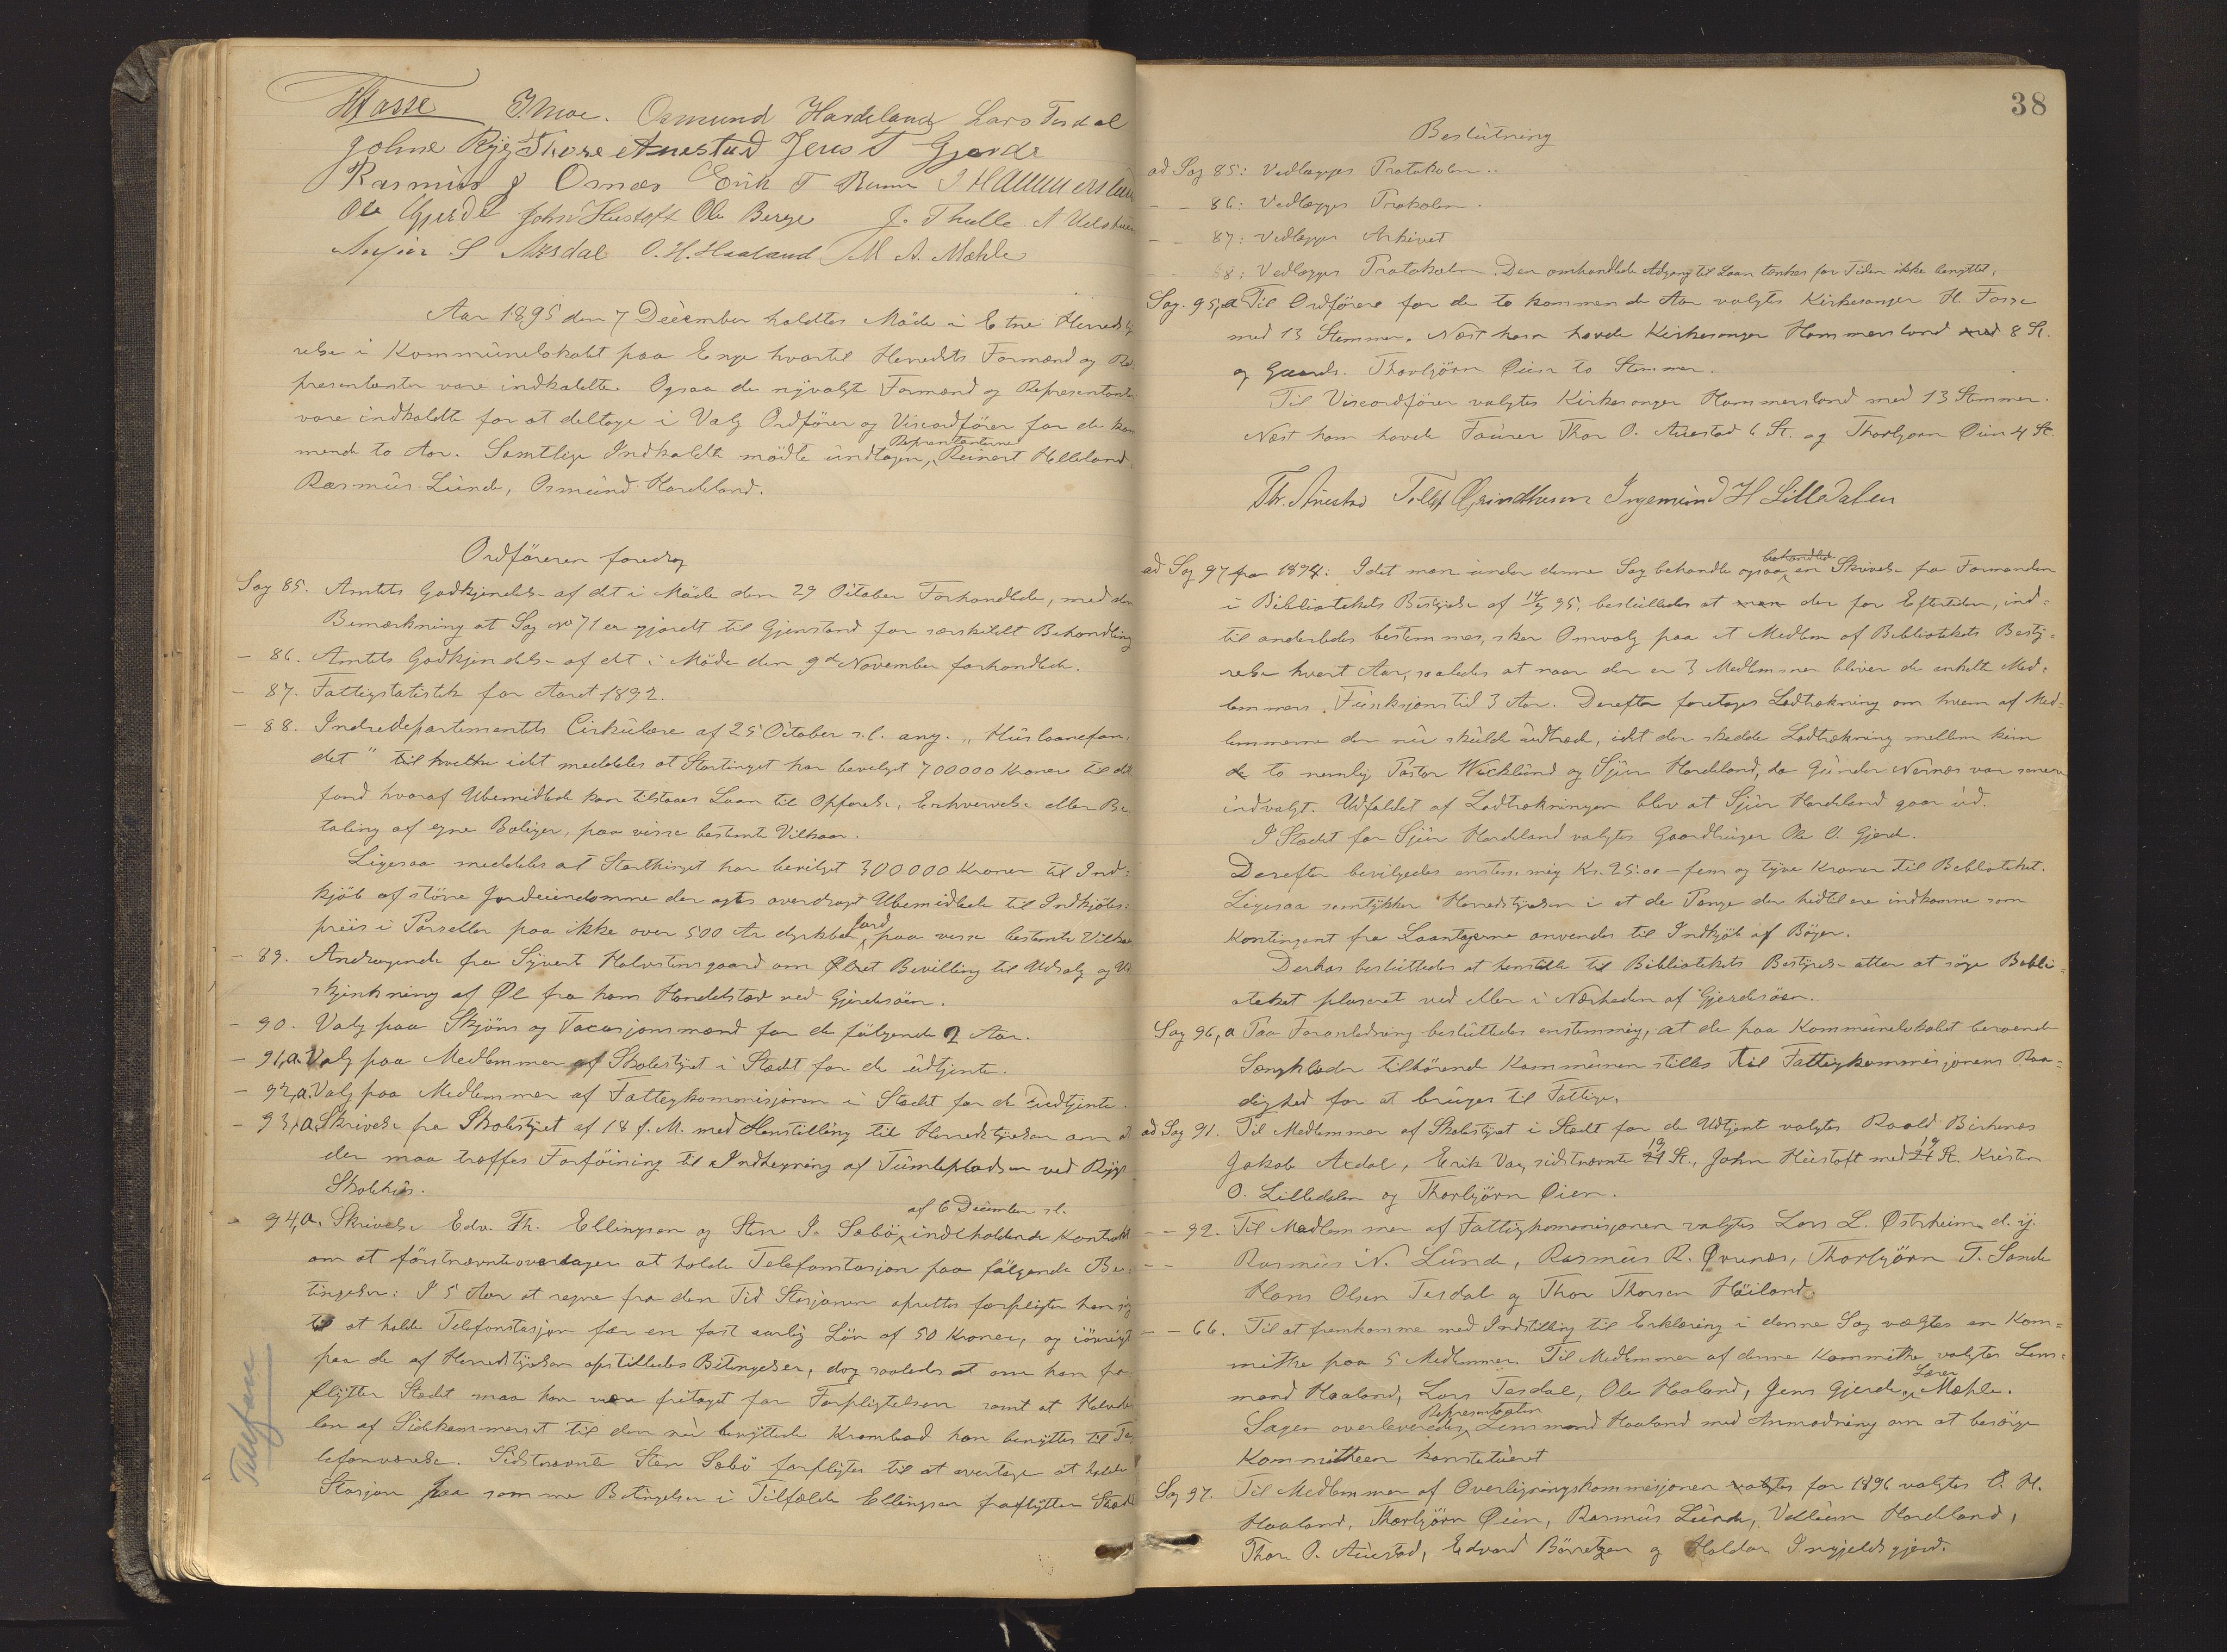 HFasse J. Moe. Osmund Hardeland Lars Tesdal
Johne Ryg Thore Auestad Jens T Gjerde
Rasmus J Ornes Erik T Hammersland
Ole Gjerde John Hustoft Ole Berge J. Thulle
S O. H. Haaland M A. Mæhle
Aar 1895 den 7 December holdtes Möde i Etne Herredsty
relse i Kommunelokalet paa Enge hvortil Herredets Formænd og Re
presentanter vare indkaldte. Ogsaa de nyvalgte Formænd og Representanter
vare indkaldte for at deltage i Valg Ordförer og Viseordförer for de kom
mende to Aar. Samtlige Indkaldte mödte undtagen, Representanterne Reinert Helleland
Rasmus Lunde, Osmund Hardeland.
Ordföreren foredrog
Sag 85. Amtets Godkjendelse af det i Möde den 29 October Forhandlede, med den
Bemærkning at Sag No 71 er gjordt til Gjenstand for særskildt Behandling
- 86. Amtets Godkjendelse af det i Möde den 9de November forhandlede.
- 87. Fattigstatistik for Aaret 1892.
- 88. Indredepartementets Cirkulære af 25 October s.l. ang. "Huslaanefon
det" til hvilke idet meddeles at Stortinget har bevilget 700000 Kroner til det
fond hvoraf Ubemidlede kan tilstaaes Laan til Opförelse, Erhvervelse eller Be
taling af egne Boliger, paa visse bestemte Vilkaar.
Ligesaa meddeles at Storthinget har bevilget 300000 Kroner til Ind=
kjöb af större Jordeiendomme der agtes overdraget Ubemidlede til Indkjöbs=
priis i Parseller paa ikke over 500 Ar dyrkbar Jord paa visse bestemte Vilkaar
- 89. Andragende fra Sjvert Halvstensgaard om Ølret Bevilling til Udsalg og Ud
skjenkning af Øl fra hans Handelstad ved Gjerdesöen.
- 90. Valg paa Skjöns og Taxasjonsmænd for de fölgende 2 Aar.
- 91,a. Valg paa Medlemmer af Skolestyret i Stædet for de udtjente.
- 92,a. Valg paa Medlemmer af Fattigkommisjonen i Stedet for de Eudtjente.
- 93,a. Skrivelse fra Skolestyret af 18 f. M. med Henstilling til Herredstyrelsen om at
der maa træffes Forföining til Indhegning af Tumlepladsen ved Rygs
Skolehus.
- 94,a. Skrivelse Edv. Th. Ellingsen og Sten J. Sæbö, af 6 December s.l. indeholdende Kontrakt
om at förstnævnte overtager at holde Telefonstasjon paa fölgende Be=
tingelser: I 5 Aar at regne fra den Tid Stasjonen oprettes forpligter han sig
til at holde Telefonstasjon for en fast aarlig Lön af 50 Kroner, og iövrigt
paa de af Herredstyrelsen opstilledes Betingelser, dog saaledes at om han fra
flytter Stedet maa han være fritaget for Forpligtelsen samt at Halvde
len af Sidekammerset til den nu benyttede Krambod han benyttes til Te
lefonværelse. Sidstnævnte Sten Sæbö forpligter til at overtage at holde
Stasjon paa samme Betingelser i Tilfælde Ellingsen fraflytter Stedet
Telefon
38
Beslutning
ad Sag 85: Vedlægges Protokolen.
- - 86: Vedlægges Protokolen.
- - 87: Vedlægges Arkivet
- - 88: Vedlægges Protokolen. Den omhandlede Adgang til Laan tænkes for Tiden ikke benyttet.
Sag. 95,a Til Ordförere for de to kommende Aar valgtes Kirkesanger H. Fosse
med 13 Stemmer. Næst ham havde Kirkesanger Hammersland med 8 St.
og Gaardb. Thorbjörn Øien to Stemmer.
Til Viseordförer valgtes Kirkesanger Hammersland med 13 Stemmer.
Næst ham havde Lærer Thor O. Auestad 6 St. og Thorbjørn Øien 4 St.
Th. Auestad Tollef Grindheim Ingemund H Lilledalen
ad Sag 97 fra 1894: Idet man under denne Sag behandle ogsaa behandlede en Skrivelse fra Formanden
i Bibliotekets Bestyrelse af 14/9 95, besluttedes at man der for Eftertiden, ind=
til anderledes bestemmes, sker Omvalg paa et Medlem af Bibliotekets Besty=
relse hvert Aar, saaledes at naar der er 3 Medlemmer bliver de enkelte Med=
lemmers Funksjonstid 3 Aar. Derefter foretages Lodtrækning om hvem af Med=
lemmerne der nu skulde udtræde, idet der skedde Lodtrækning mellem kun
de to nemlig Pastor Wicklund og Sjur Hardeland, da Gunder Nernæs var senere
indvalgt. Udfaldet af Lodtrækningen blev at Sjur Hardeland gaar ud.
I Stædet for Sjur Hardeland valgtes Gaardbruger Ole O. Gjerde.
Derefter bevilgedes enstemmig Kr. 25.00 - fem og tyve Kroner til Biblioteket.
Ligesaa samtykker Herredstyrelsen i at de Penge der hidtil ere indkomne som
Kontingent fra Laantagerne anvendes til Indkjöb af Böger.
Derhos besluttedes at henstille til Bibliotekets Bestyrelse atter at söge Bibli=
oteket plaseret ved eller i Nærheden af Gjerdesöen.
Sag 96,a Paa Foranledning besluttedes enstemmig, at de paa Kommunelokalet beroende
Sengklæder tilhörende Kommunen stilles til Fattigkommisjonens Raa=
dighed for at bruges til Fattige.
ad Sag 91. Til Medlemmer af Skolestyret i Stædet for de Udtjente valgtes Roald Birkenes
Jakob Axdal, Erik Vaa, sidstnævnte 21 19 St., John Hustoft med 21 19 St. Kristen
O. Lilledalen og Thorbjörn Øien.
- - 92. Til Medlemmer af Fattigkommisjonen valgtes Lars L. Østrheim d. y.
Rasmus N. Lunde, Rasmus R. Ørenes, Thorbjörn T. Sande
Hans Olsen Tesdal og Thor Thorsen Höiland.
- - 66. Til at fremkomme med Indstilling til Erklæring i denne Sag vælgtes en Kom=
mithe paa 5 Medlemmer. Til Medlemmer af denne Kommithe valgtes Lens=
mand Haaland, Lars Tesdal, Ole Haaland, Jens Gjerde, Lærer Mæhle.
Sagen overleveredes Representanten Lensmand Haaland med Anmodning om at besörge
Kommitheen konstitueret
Sag 97. Til Medlemmer af Overligningskommisjonen valgtes for 1896 valgtes O. H.
Haaland, Thorbjörn Øien, Rasmus Lunde, Hardeland,
Thor O. Auestad, Edvard Börretzen og Haldor Ingjeldsgjerd.